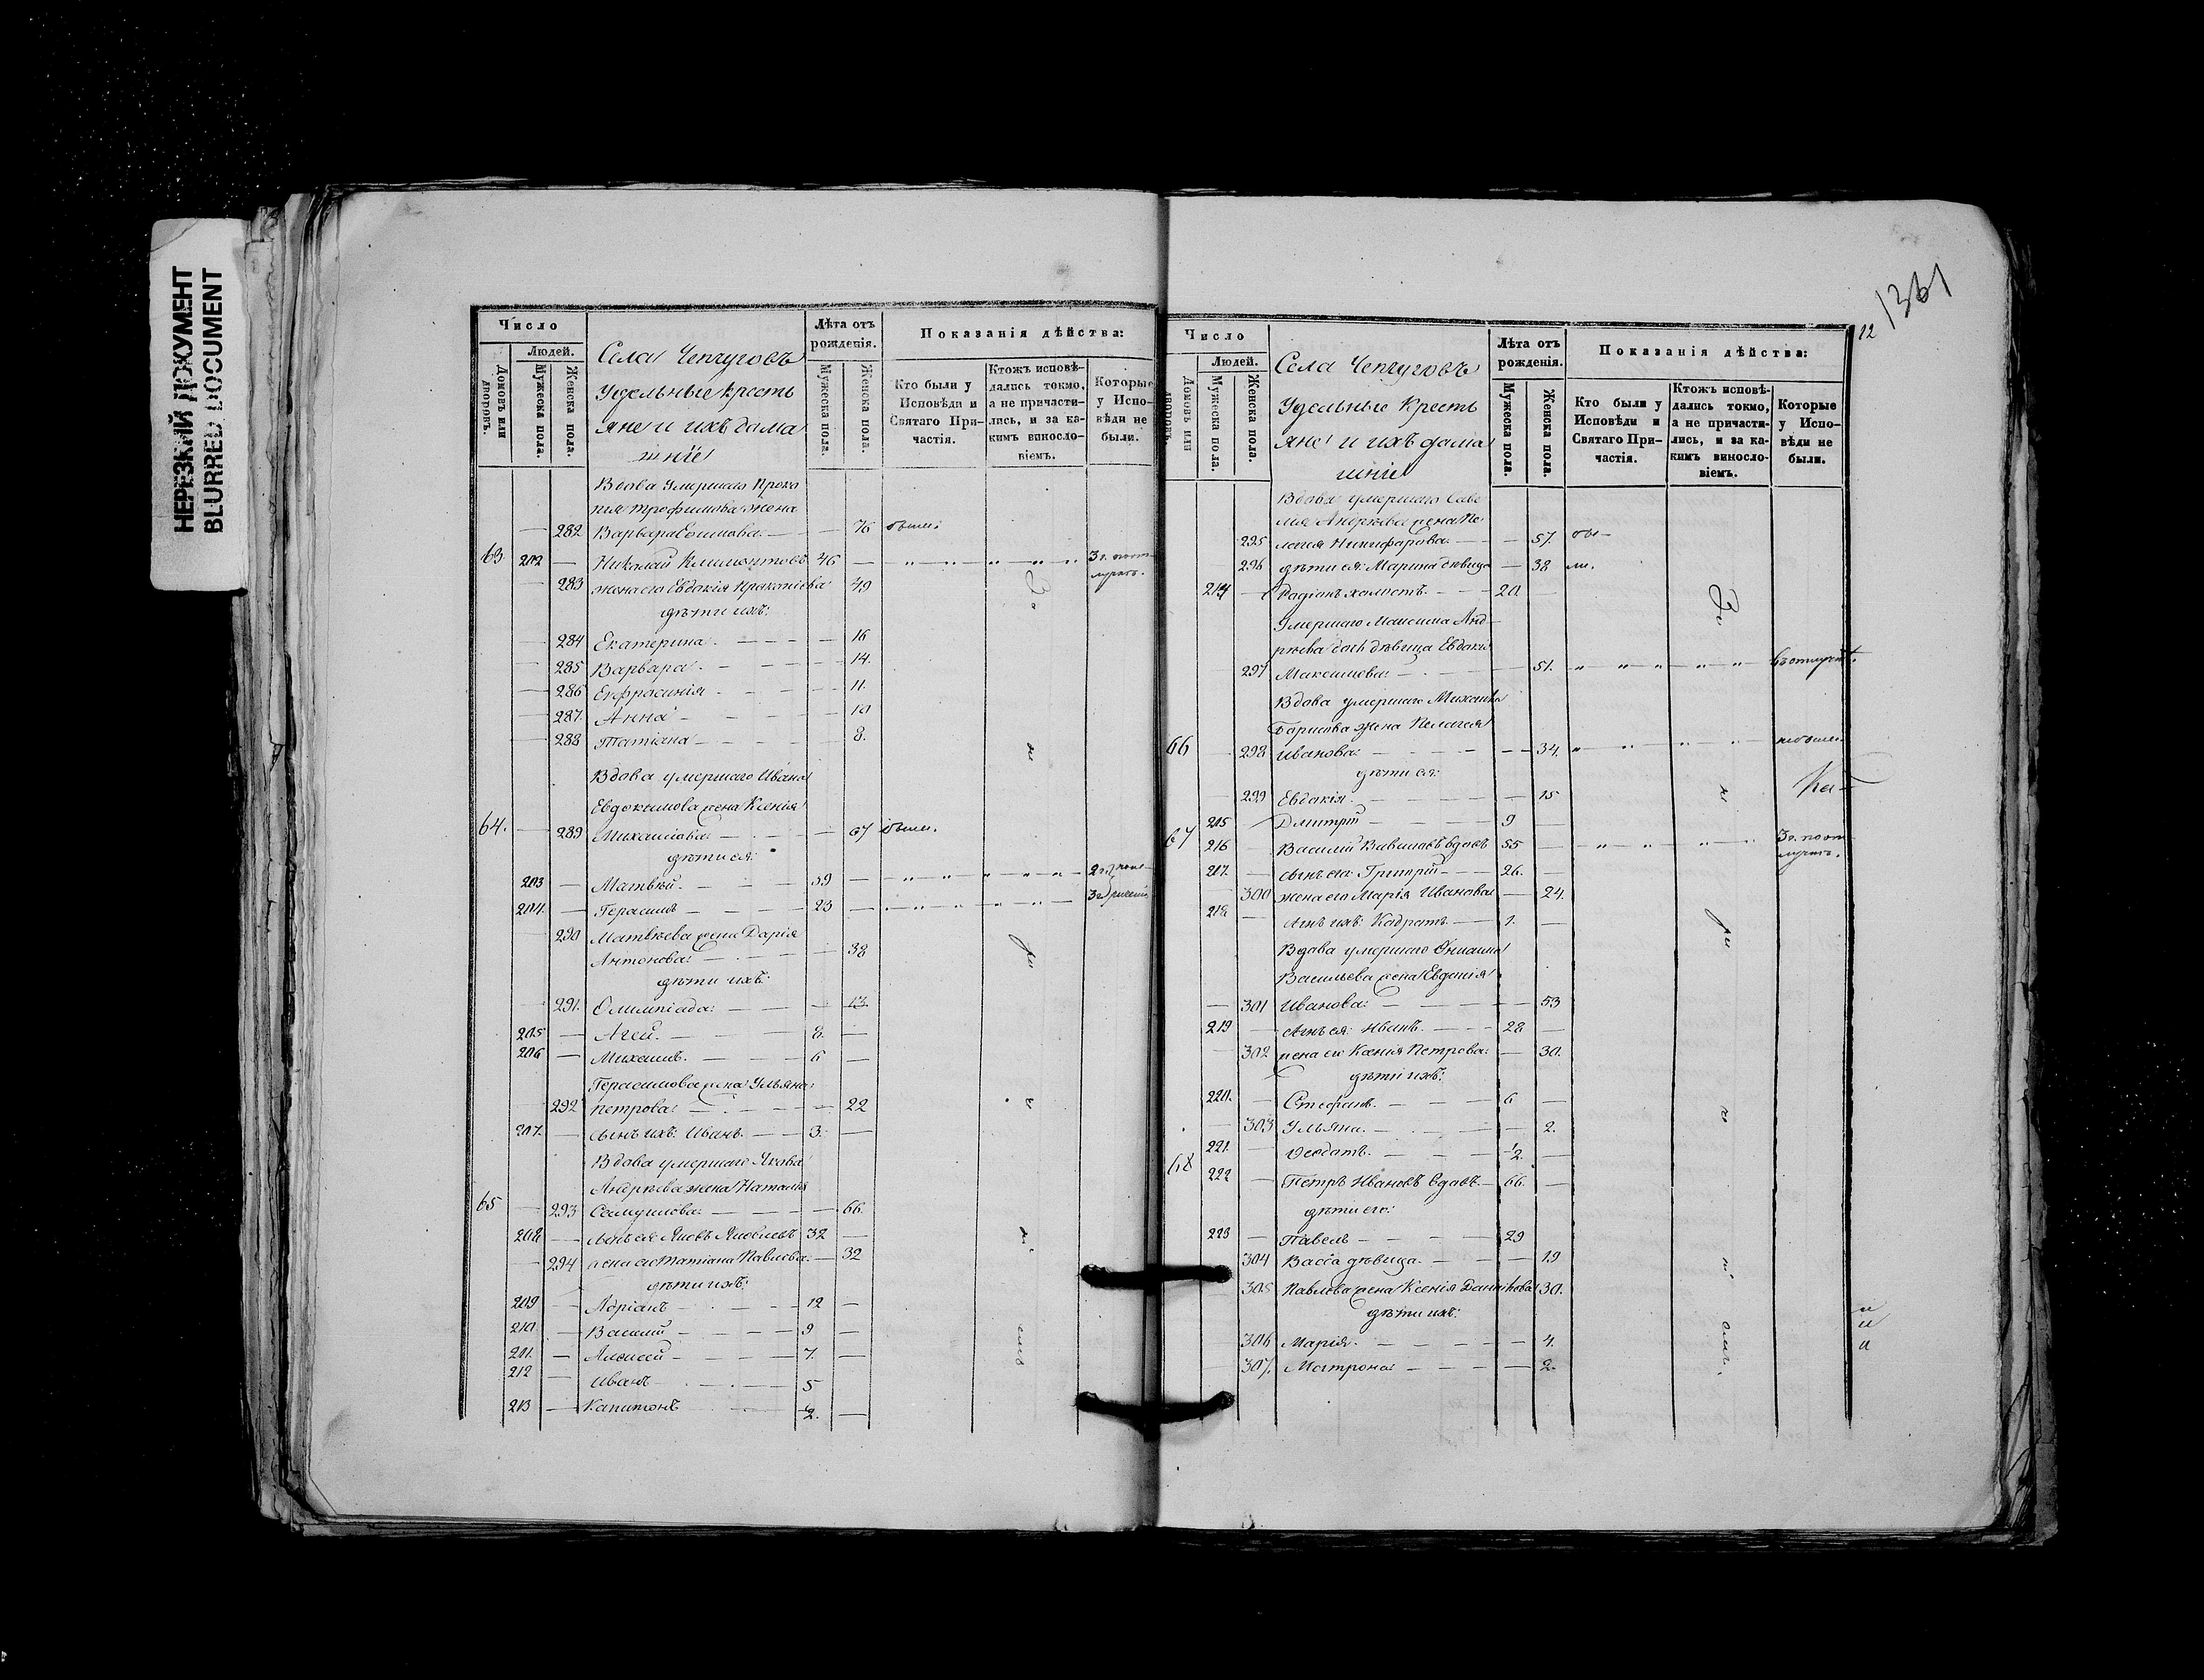 НЕРЕЗКИЙ ДОКУМЕНТ
BLURRED DOCUMENT
Число
Людей.
Домовъ или дворовъ.
Мужеска пола.
Женска пола.
Села Чепчуговъ
Удельные кресть
яне и ихъ дома
шніе
Лѣта отъ рожденія.
Мужеска пола.
Женска пола.
Показанія дѣйства:
Кто были у Исповѣди и Святаго Причастія.
Ктожъ исповѣдались токмо, а не причастились, и за какимъ винословіемъ.
Которые у Исповѣди не были.
Вдова умершаго Проко
пія Трофимова жена
282 Варвара — — 76 были
63 202 — Николай Климонтовъ 46 —
283 жена его Евдокія Прокопіева 49
дѣти ихъ:
284 Екатерина — — 16
285 Варвара — — 14.
286 Евфросинія — — 11.
287 Анна — — 10
288 Татіана — — 8.
Вдова умершаго Ивана
Евдокимова жена Ксенія
64. — 289 Михаилова — — 67 были.
дѣти ея:
203 — Матвѣй — 39 —
204 — Герасимъ — 23 —
290 Матвѣева жена Дарія
Антонова — — 38
дѣти ихъ:
291. Олимпіада — — 13
205 — Агей — 8. —
206 — Михаилъ — 6 —
Герасимова жена Ульяна
292 Петрова — — 22
207. — сынъ ихъ: Иванъ — 3. —
Вдова умершаго Якова
Андреева жена Наталія
65 — 293 Самуилова — — 66.
208 — сынъ ея Яковъ Яковлевъ 32 —
294 жена его Татіана Павлова — 32
дѣти ихъ:
209 — Адріанъ — 12 —
210 — Василій — 9 —
211. — Алексей — 7. —
212 — Иванъ — 5
213 — Капитонъ — 2. —
1361
12
Число
Людей.
Домовъ или дворовъ.
Мужеска пола.
Женска пола.
Села Чепчуговъ
Удельные кресть
яне и ихъ дома
шніе
Лѣта отъ рожденія.
Мужеска пола.
Женска пола.
Показанія дѣйства:
Кто были у Исповѣди и Святаго Причастія.
Ктожъ исповѣдались токмо, а не причастились, и за какимъ винословіемъ.
Которые у Исповѣди не были.
Вдова умершаго Саве
лія Андреева жена Пе
295 лагея Никифарова — — 57. бы—
296 дѣти ея: Марина дѣвица — 38 ли.
214 — Радіонъ холостъ — 20 —
Умершаго Максима Анд—
реева дочь дѣвица Евдокія
297 Максимова — — 51.
Вдова умершаго Михаила
Борисова жена Пелагея
66 — 298 Иванова — — 34. не были
дѣти ея:
299 Евдокія — — 15
215 Дмитрій — 9 —
67 216 — Василій вдовъ 55 —
217. — сынъ его Григорій — 26. —
300 жена его Марія Иванова — 24.
218 — сынъ ихъ: Кодратъ — 1. —
Вдова умершаго
Васильева жена Евдокія
— 301 Иванова — — 53
219 — сынъ ея: Иванъ — 28 —
302 жена его Ксенія Петрова — 30.
дѣти ихъ:
220. — Стефанъ — 6 —
303 Ульяна — — 2.
221. — Феодотъ — ½ —
68 222 — Петръ Ивановъ вдовъ — 66. —
дѣти его:
223 — Павелъ — 29
304 Васса дѣвица — — 19
305 Павлова жена Ксенія Данилова 30.
дѣти ихъ:
306 Марія — — 4.
307. Матрона — — 2.